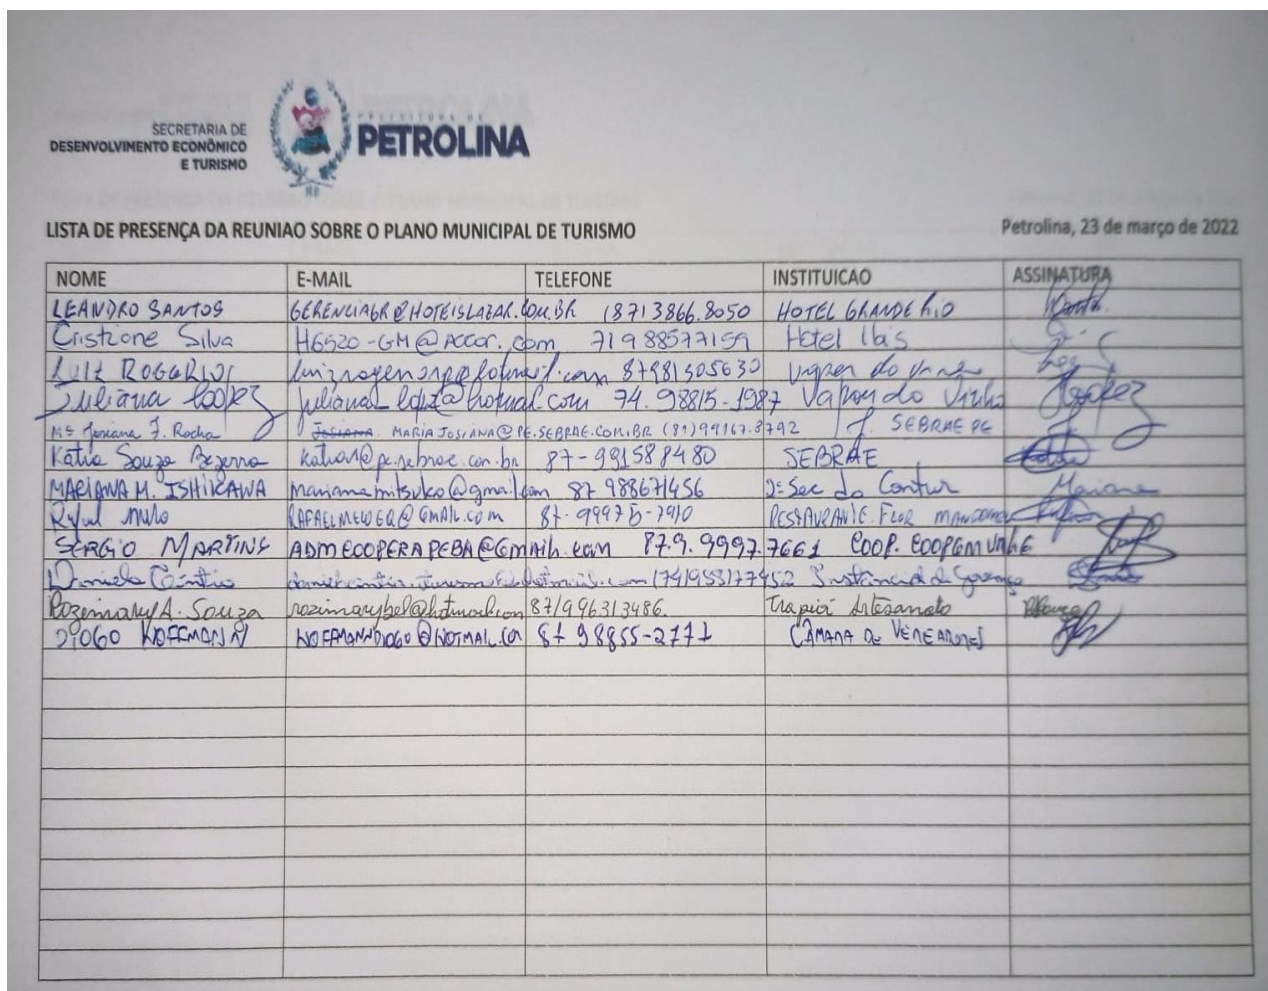 SECRETARIA DE
DESENVOLVIMENTO ECONÔMICO
E TURISMO
PREFEITURA DE
PETROLINA
LISTA DE PRESENÇA DA REUNIAO SOBRE O PLANO MUNICIPAL DE TURISMO
Petrolina, 23 de março de 2022
NOME E-MAIL TELEFONE INSTITUICAO ASSINATURA
LEANDRO SANTOS GERENCIAGR@HOTEISLAZAR.COM.BR (87) 3866.8050 HOTEL GRANDE RIO
Cristiane Silva H6520-GM@ACCOR.com 71988577159 Hotel Ibis
LUIZ ROGERIO 87981305630 Vapor do
Juliana Lopez 74.98815-1987 Vapor do Vinho Lopez
Mª Josiana F. Rocha MARIAJOSIANA@PE.SEBRAE.COM.BR (81) 99167.3792 SEBRAE PE
Katia Souza Bezerra @pe.sebrae.com.br 87-991588480 SEBRAE
MARIANA M. ISHIKAWA marianamitsuko@gmail.com 87 988671456 2ª Sec do Contur Mariana
RAFAELMELOER@GMAIL.com 87-99975-7910 RESTAURANTE FLOR
SERGIO MARTINS ADMCOOPERAPEBA@Gmail.com 87.9.9997.7661 COOP.
Daniela Cíntia (74) Instância de
Rozimary A. Souza rozimarybel@hotmail.com 87/996313486. Trapiá Artesanato
DIOGO HOFFMANN HOFFMANNDIOGO@HOTMAIL.COM 87 98855-2771 CÂMARA DE VEREADORES